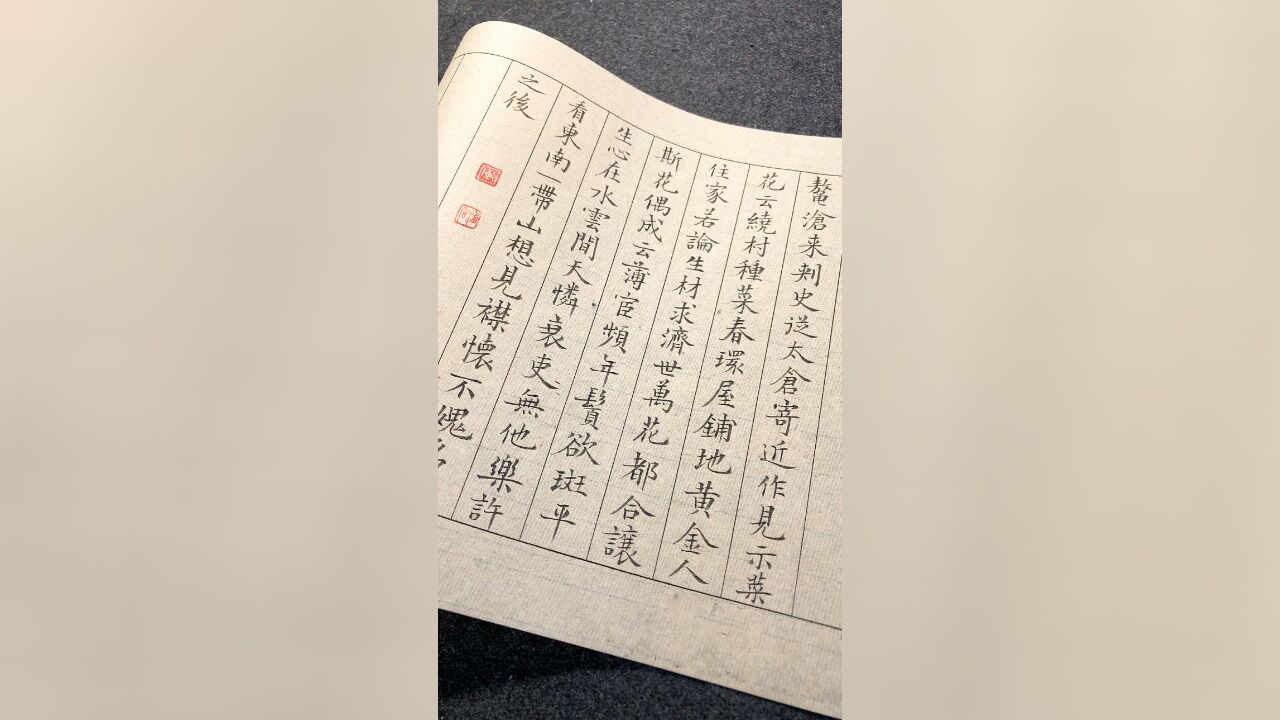 鰲滄来刺史從太倉寄近作見示菜
花云繞村種菜春環屋鋪地黄金人
住家若論生材求濟世萬花都合讓
斯花偶成云薄宦頻年鬢欲斑平
生心在水雲間天憐衰吏無他樂許
看東南一帶山想見襟懷不愧
之後